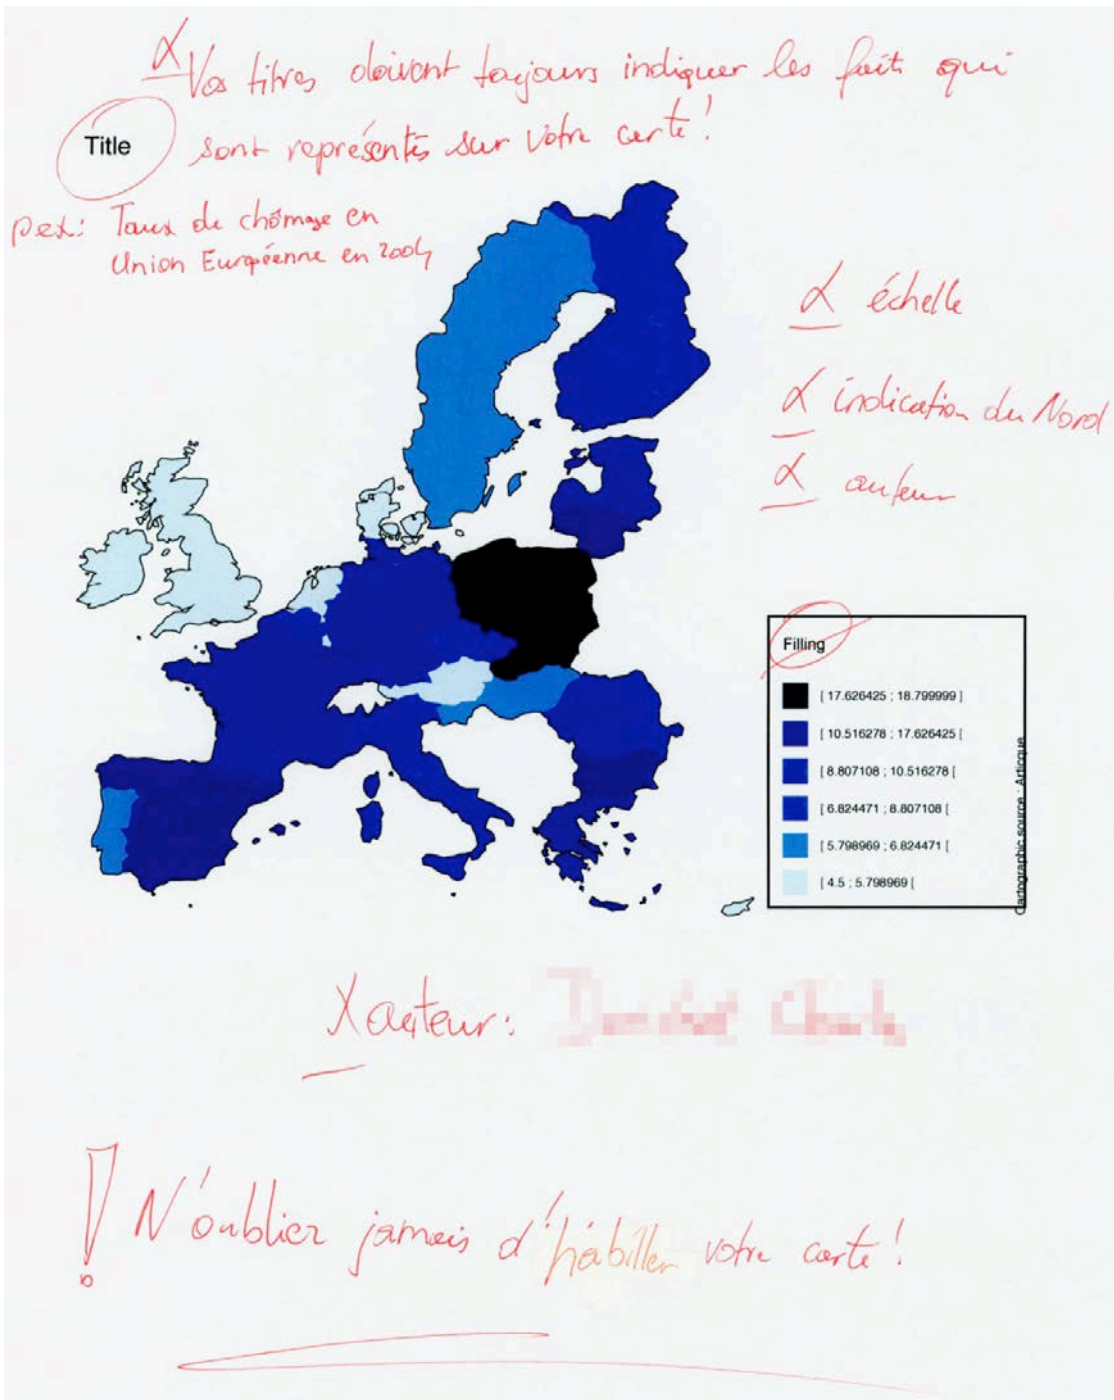 α Vos titres doivent toujours indiquer les faits qui
Title
sont représentés sur votre carte!
p.ex: Taux de chômage en
Union Européenne en 2004
α échelle
α indication du Nord
α auteur
Filling
[ 17.626425 ; 18.799999 ]
[ 10.516278 ; 17.626425 [
[ 8.807108 ; 10.516278 [
[ 6.824471 ; 8.807108 [
[ 5.798969 ; 6.824471 [
[ 4.5 ; 5.798969 [
Cartographic source : Articque
α auteur:
! N'oubliez jamais d'habiller votre carte!